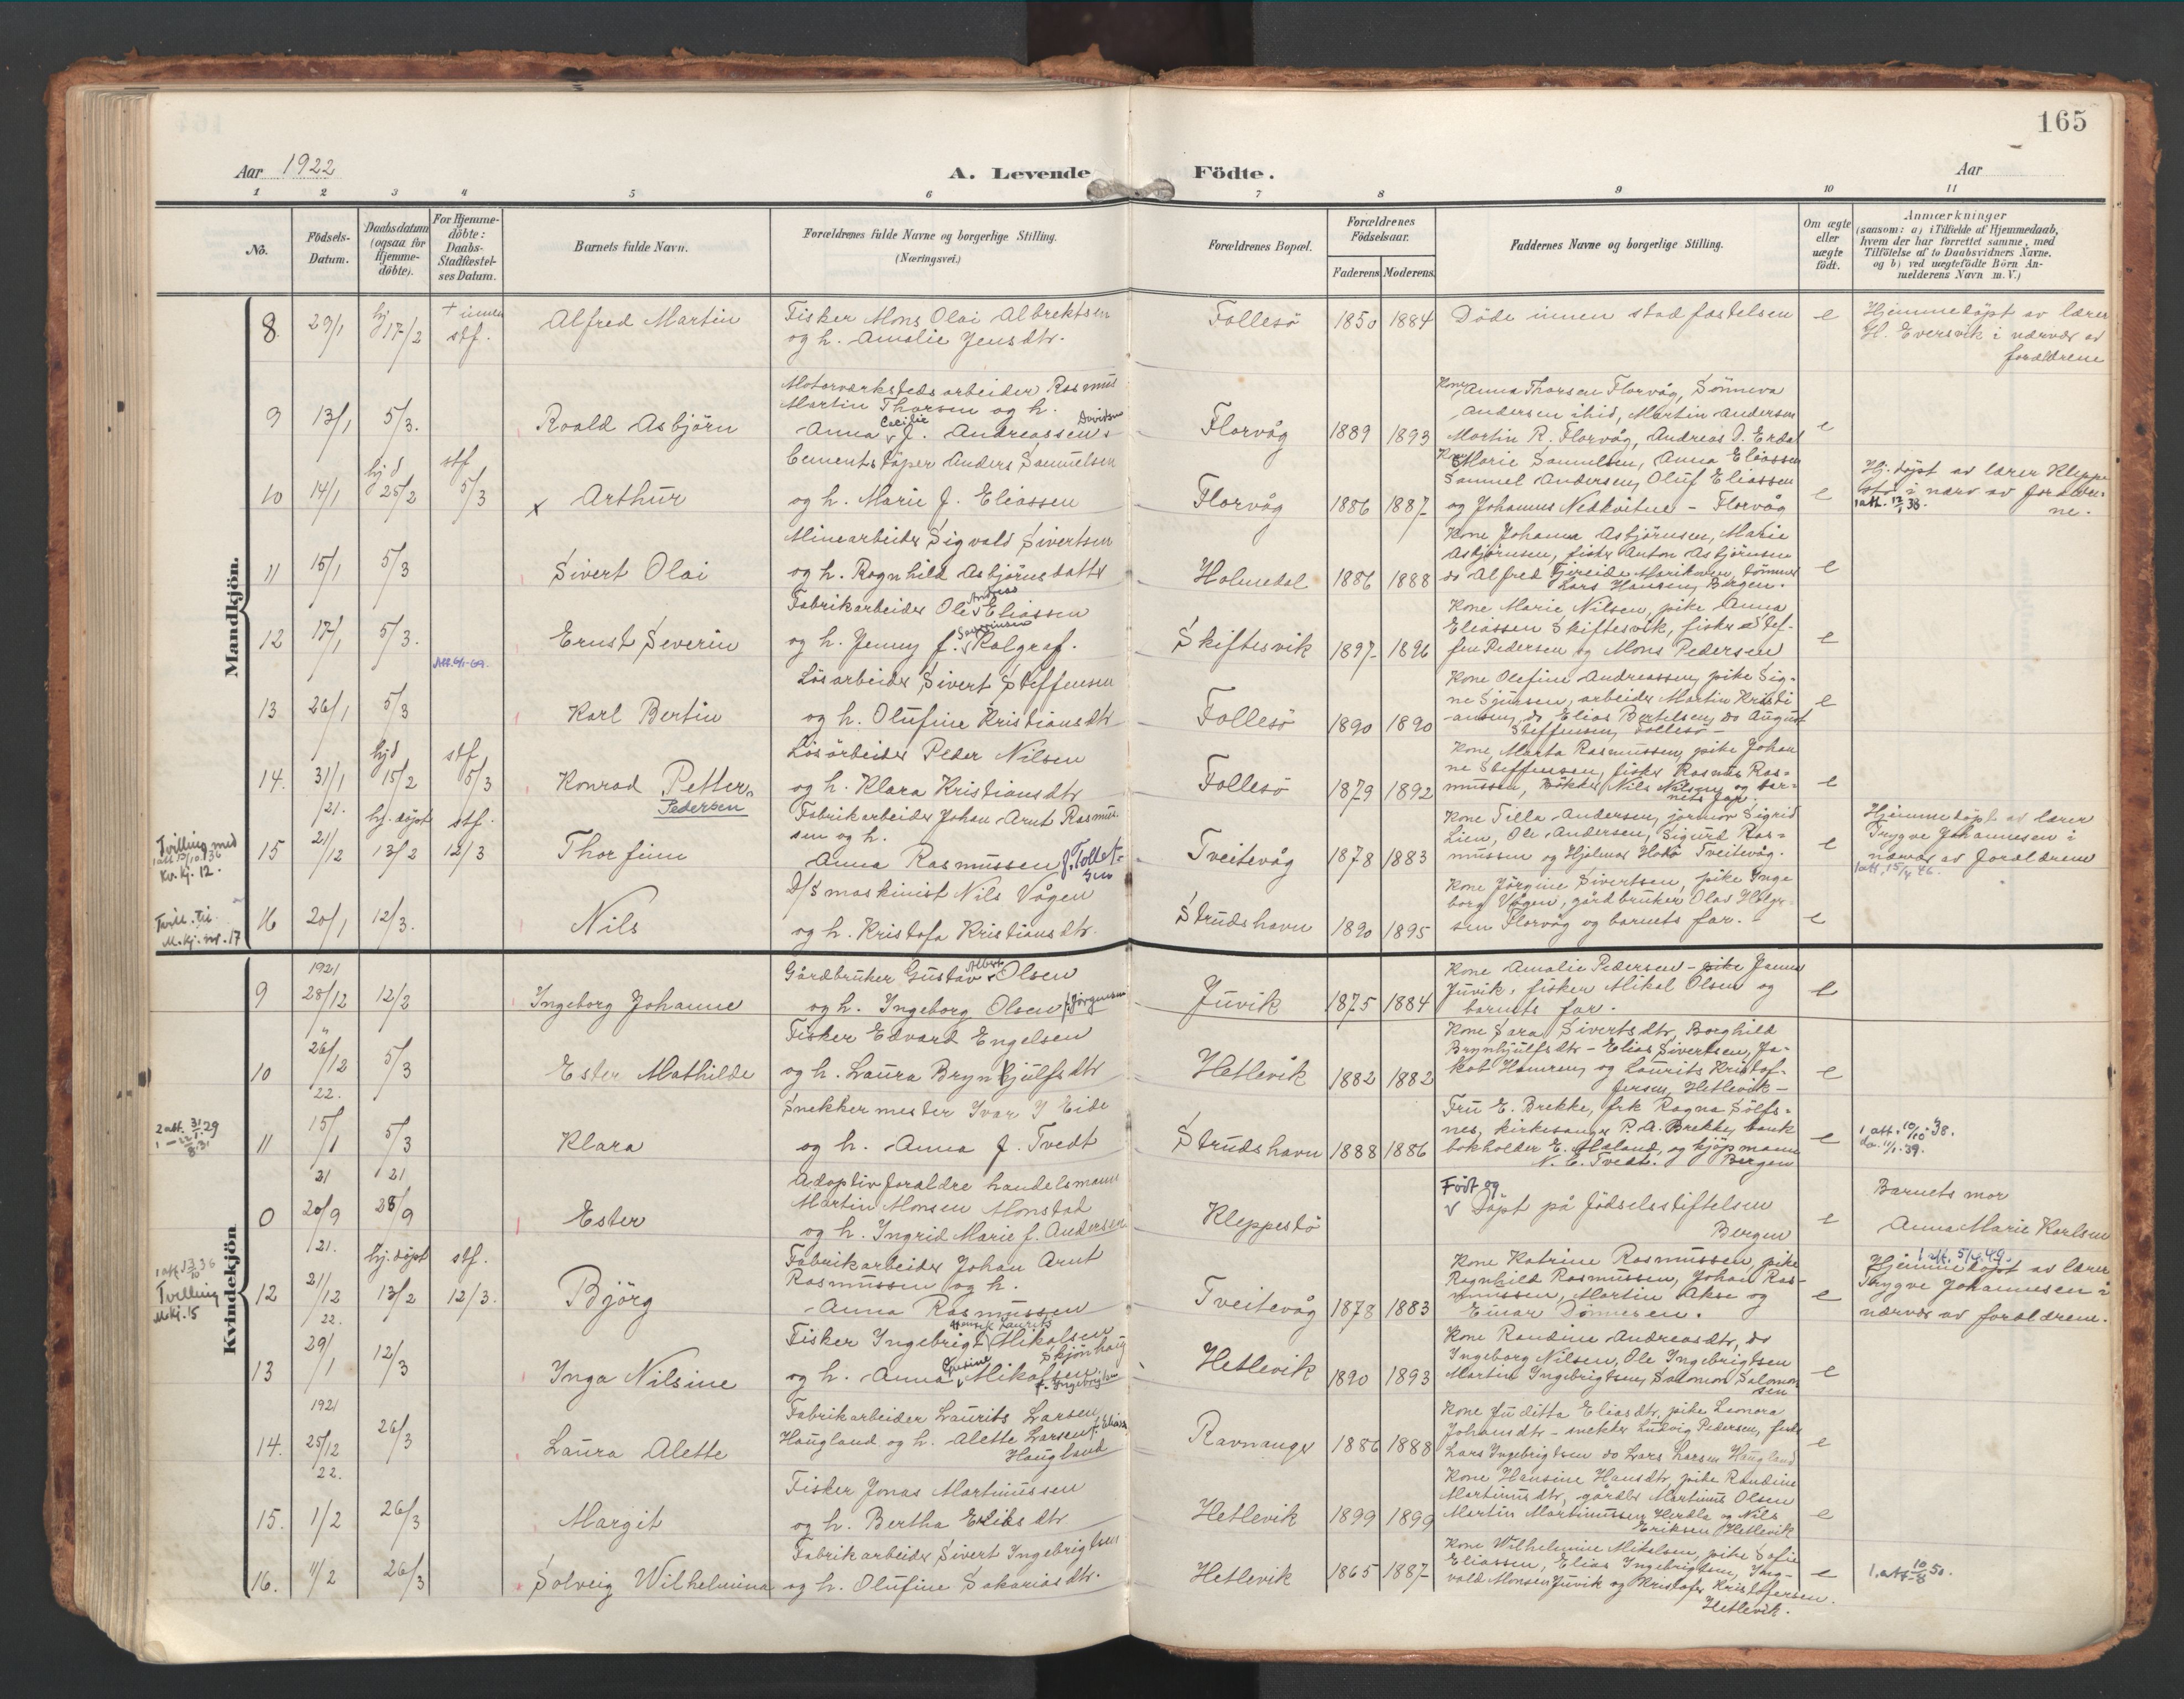 165
Aar 1922
A. Levende Födte.
Aar
1 2 3 4 5 6 7 8 9 10 11
No.
Födsels-
Datum.
Daabsdatum
(ogsaa for
Hjemme-
döbte).
For Hjemme-
döbte:
Daabs-
Stadfæstel-
ses Datum.
Barnets fulde Navn.
Forældrenes fulde Navne og borgerlige Stilling.
(Næringsvei.)
Forældrenes Bopæl.
Forældrenes
Födselsaar.
Faderens Moderens.
Faddernes Navne og borgerlige Stilling.
Om ægte
eller
uægte
födt.
Anmærkninger
(saasom: a) i Tilfælde af Hjemmedaab,
hvem der har forrettet samme, med
Tilföielse af to Daabsvidners Navne.
og b) ved uægtefödte Börn An-
melderens Navn m. V.)
Mandkjön.
8 29/1 hj 17/2 + innen stf. Alfred Martin
Fisker Mons Olai Albrektsen
og h. Amalie Jensdtr.
Follesö 1850 1884
Döde innen stadfæstelsen e
Hjemmedöpt av lærer
H. Eversvik i nærvær av
forældrene
9 13/1 5/3. Roald Asbjörn
Motorværkstedsarbeider Rasmus
Martin Thorsen og h.
Anna Cecilie f. Andreassen Davidsen
Florvåg 1889 1893
Kone Anna Thorsen Florvåg, Sönneva
Andersen ibid, Martin Andersen
Martin R. Florvåg, Andreas D. Erdal
e
10 14/1 hjd 25/2 stf 5/3 x Arthur
Cementstöper Anders Samuelsen
og h. Marie f. Eliassen
Florvåg 1886 1887
Kone Marie Samuelsen, Anna Eliassen
Samuel Andersen, Oluf Eliassen
og Johannes Nedkvitne - Florvåg
e
Hj. döpt av lærer Kleppe
stö i nærv av foreldre-
ne.
1 att. 12/1 38.
11 15/1 5/3 Sivert Olai
Minearbeider Sigvald Sivertsen
og h. Ragnhild Asbjörnsdatter
Holmedal 1886 1888
Kone Johanna Asbjörnsen, Marie
Asbjörnsen, fisker Anton Asbjörnsen
do Alfred Fjereide Marikoven, tömmer
Lars Hansen, Bergen.
e
12 17/1 5/3. Ernst Severin
Fabrikarbeider Ole Andreas Eliassen
og h. Jenny f. Severinsen Kolgraf.
Skiftesvik 1897 1896
Kone Marie Nilsen, pike Anna
Eliassen Skiftesvik, fisker Stef-
fen Pedersen og Mons Pedersen
e
13 26/1 5/3 Karl Bertin
Lösarbeider Sivert Steffensen
og h. Olufine Kristiansdtr
Follesö 1890 1890
Kone Olefine Andreassen, pike Sig-
ne Sjursen, arbeider Martin Kristi
ansen, do Elias Bertelsen, do August
Steffensen, Follesö -
e
14. 31/1 hjd 15/2 stf 5/3 Konrad Petter
Pedersen
Lösarbeider Peder Nilsen
og h. Klara Kristiansdtr
Follesö 1879 1892
Kone Marta Rasmussen, pike Johan
ne Steffensen, fisker Rasmus Ras-
mussen, Bökker Nils Nilsen, og bar-
nets far.
e
Tvilling med
1 att 13/10 36
Kv. kj. 12.
15 21. 21/12 hj. döpt 13/2 stf. 12/3 Thorfinn
Fabrikarbeider Johan Arnt Rasmus-
sen og h.
Anna Rasmussen f. Tollef-
sen
Tveitevåg 1878 1883
Kone Tilla Andersen, jormor Sigrid
Lien, Ole Andersen, Sigurd Ras-
mussen og Hjalmar Tveitevåg.
e
Hjemmedöpt av lærer
Trygve Johannesen i
nærvær av forældrene
1 att. 15/4 46.
Tvill. til
M. kj. nr. 17
16 20/1 12/3. Nils
D/S maskinist Nils Vågen
og h. Kristofa Kristiansdtr.
Strudshavn 1890 1895
Kone Jörgine Sivertsen, pike Inge
borg Vågen, gårdbruker Olav Holger
sen Florvåg og barnets far.
e
Kvindekjön
9 1921 28/12 12/2 Ingeborg Johanne
Gårdbruker Gustav Albert Olsen
og h. Ingeborg Olsen f. Jörgensen
Juvik 1875 1884
Kone Amalie Pedersen - pike Janna
Juvik, fisker Mikal Olsen og
barnets far.
e
10 " 26/12 5/3 Ester Mathilde
Fisker Edvard Engelsen
og h. Laura Brynhjulfsdtr
Hetlevik 1882 1882
Kone Sara Sivertsdtr, Borghild
Brynhjulfsdtr - Elias Sivertsen, Ja-
kob Hamren, og Laurits Kristof-
fersen, Hetlevik -
e
2 att. 31/1 29
11 22. 15/1 5/3 Klara
Snekkermester Ivar J Eide
og h. Anna f. Tvedt
Strudshavn 1888 1886
Fru E. Brekke, frk Ragna Sölfs-
nes, kirkesanger P. A. Brekke, bank
bokholder E. Aaland, og kjöpmann
N. E. Tvedt. Bergen
e
1 att. 10/10 38.
do. 11/1. 39.
0 21 20/9 21 28/9 Ester
Adoptivforældre handelsmann
Martin Monsen Monstad
og h. Ingrid Marie f. Andersen
Kleppestö
Födt og
Döpt på födselsstiftelsen
Bergen
e
Barnets mor
Anna Marie Karlsen
1 att. 13/10 36
Tvilling
M.kj. 15
12 21. 21/12 hj. döpt 13/2 stf. 12/3. Björg
Fabrikarbeider Johan Arnt
Rasmussen og h.
Anna Rasmussen
Tveitevåg 1878 1883
Kone Katrine Rasmussen, pike
Ragnhild Rasmussen, Johan Ras-
mussen, Martin Akse og
Einar Dönnesen.
e
1 att. 5/4 49.
Hjemmedöpt av lærer
Trygve Johannesen i
nærvær av forældrene.
13 22. 29/1 12/3 Inga Nilsine
Fisker Ingebrigt Henrik Laurits Mikalsen
Skjönhaug
og h. Anna Gurine Mikalsen
f. Ingebrigtsen
Hetlevik 1890 1893
Kone Randine Andreasdtr, do
Ingeborg Nilsen, Ole Ingebrigtsen
Martin Ingebrigtsen, Salomon Salomon
sen
e
14. 1921 25/12 26/3 Laura Alette
Fabrikarbeider Laurits Larsen
Haugland og h. Alette Larsen f. Eliassen
Haugland
Ravnanger 1886 1888
Kone Juditta Eliasdtr, pike Leonora
Johansdtr - snekker Ludvig Pedersen, fisker
Lars Ingebrigtsen do Lars Larsen Haugland
e
15. 22. 1/2 26/3 Margit
Fisker Jonas Martinussen
og h. Bertha Eriksdtr
Hetlevik 1899 1899
Kone Hansine Hansdtr, pike Randine
Martinusdtr, gårdbr Martinus Olsen
Martin Martinussen Herdla og Nils
Eriksen Hetlevik
e
16. 11/2 26/3 Solveig Wilhelmina
Fabrikarbeider Sivert Ingebrigtsen
og h. Olufine Sakariasdtr.
Hetlevik 1865 1887
Kone Wilhelmine Mikelsen, pike Sofie
Eliassen, Elias Ingebrigtsen, Ing-
vald Monsen Juvik og Kristofer Kristofersen.
Hetlevik.
e
1. att 10/8 50.